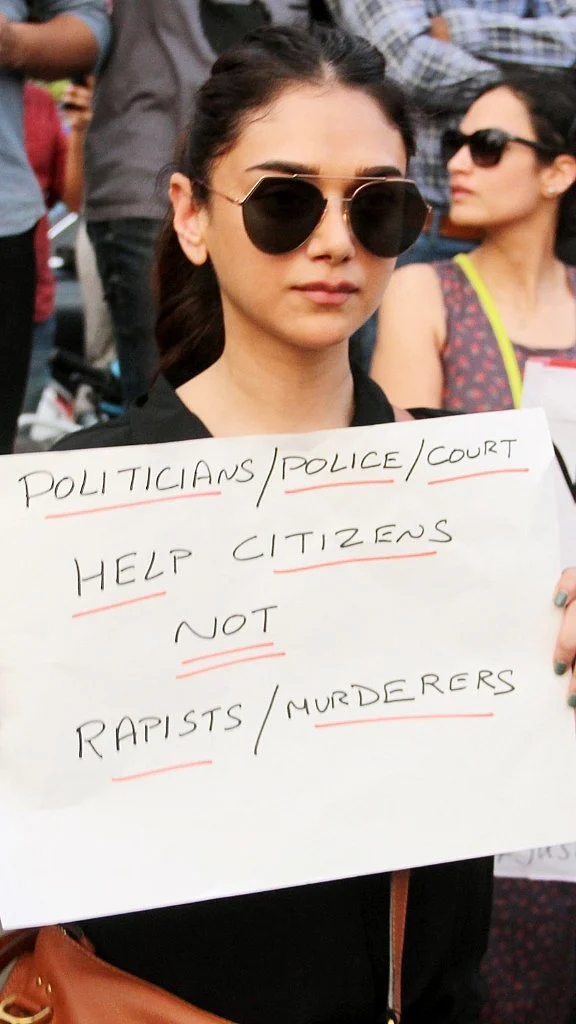 POLITICIANS/POLICE/COURT
HELP CITIZENS
NOT
RAPISTS/MURDERERS